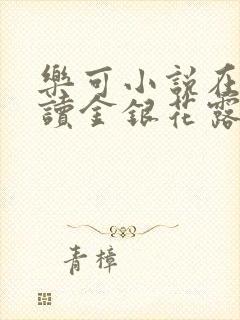 樂可小說在
讀金銀花露
青樟